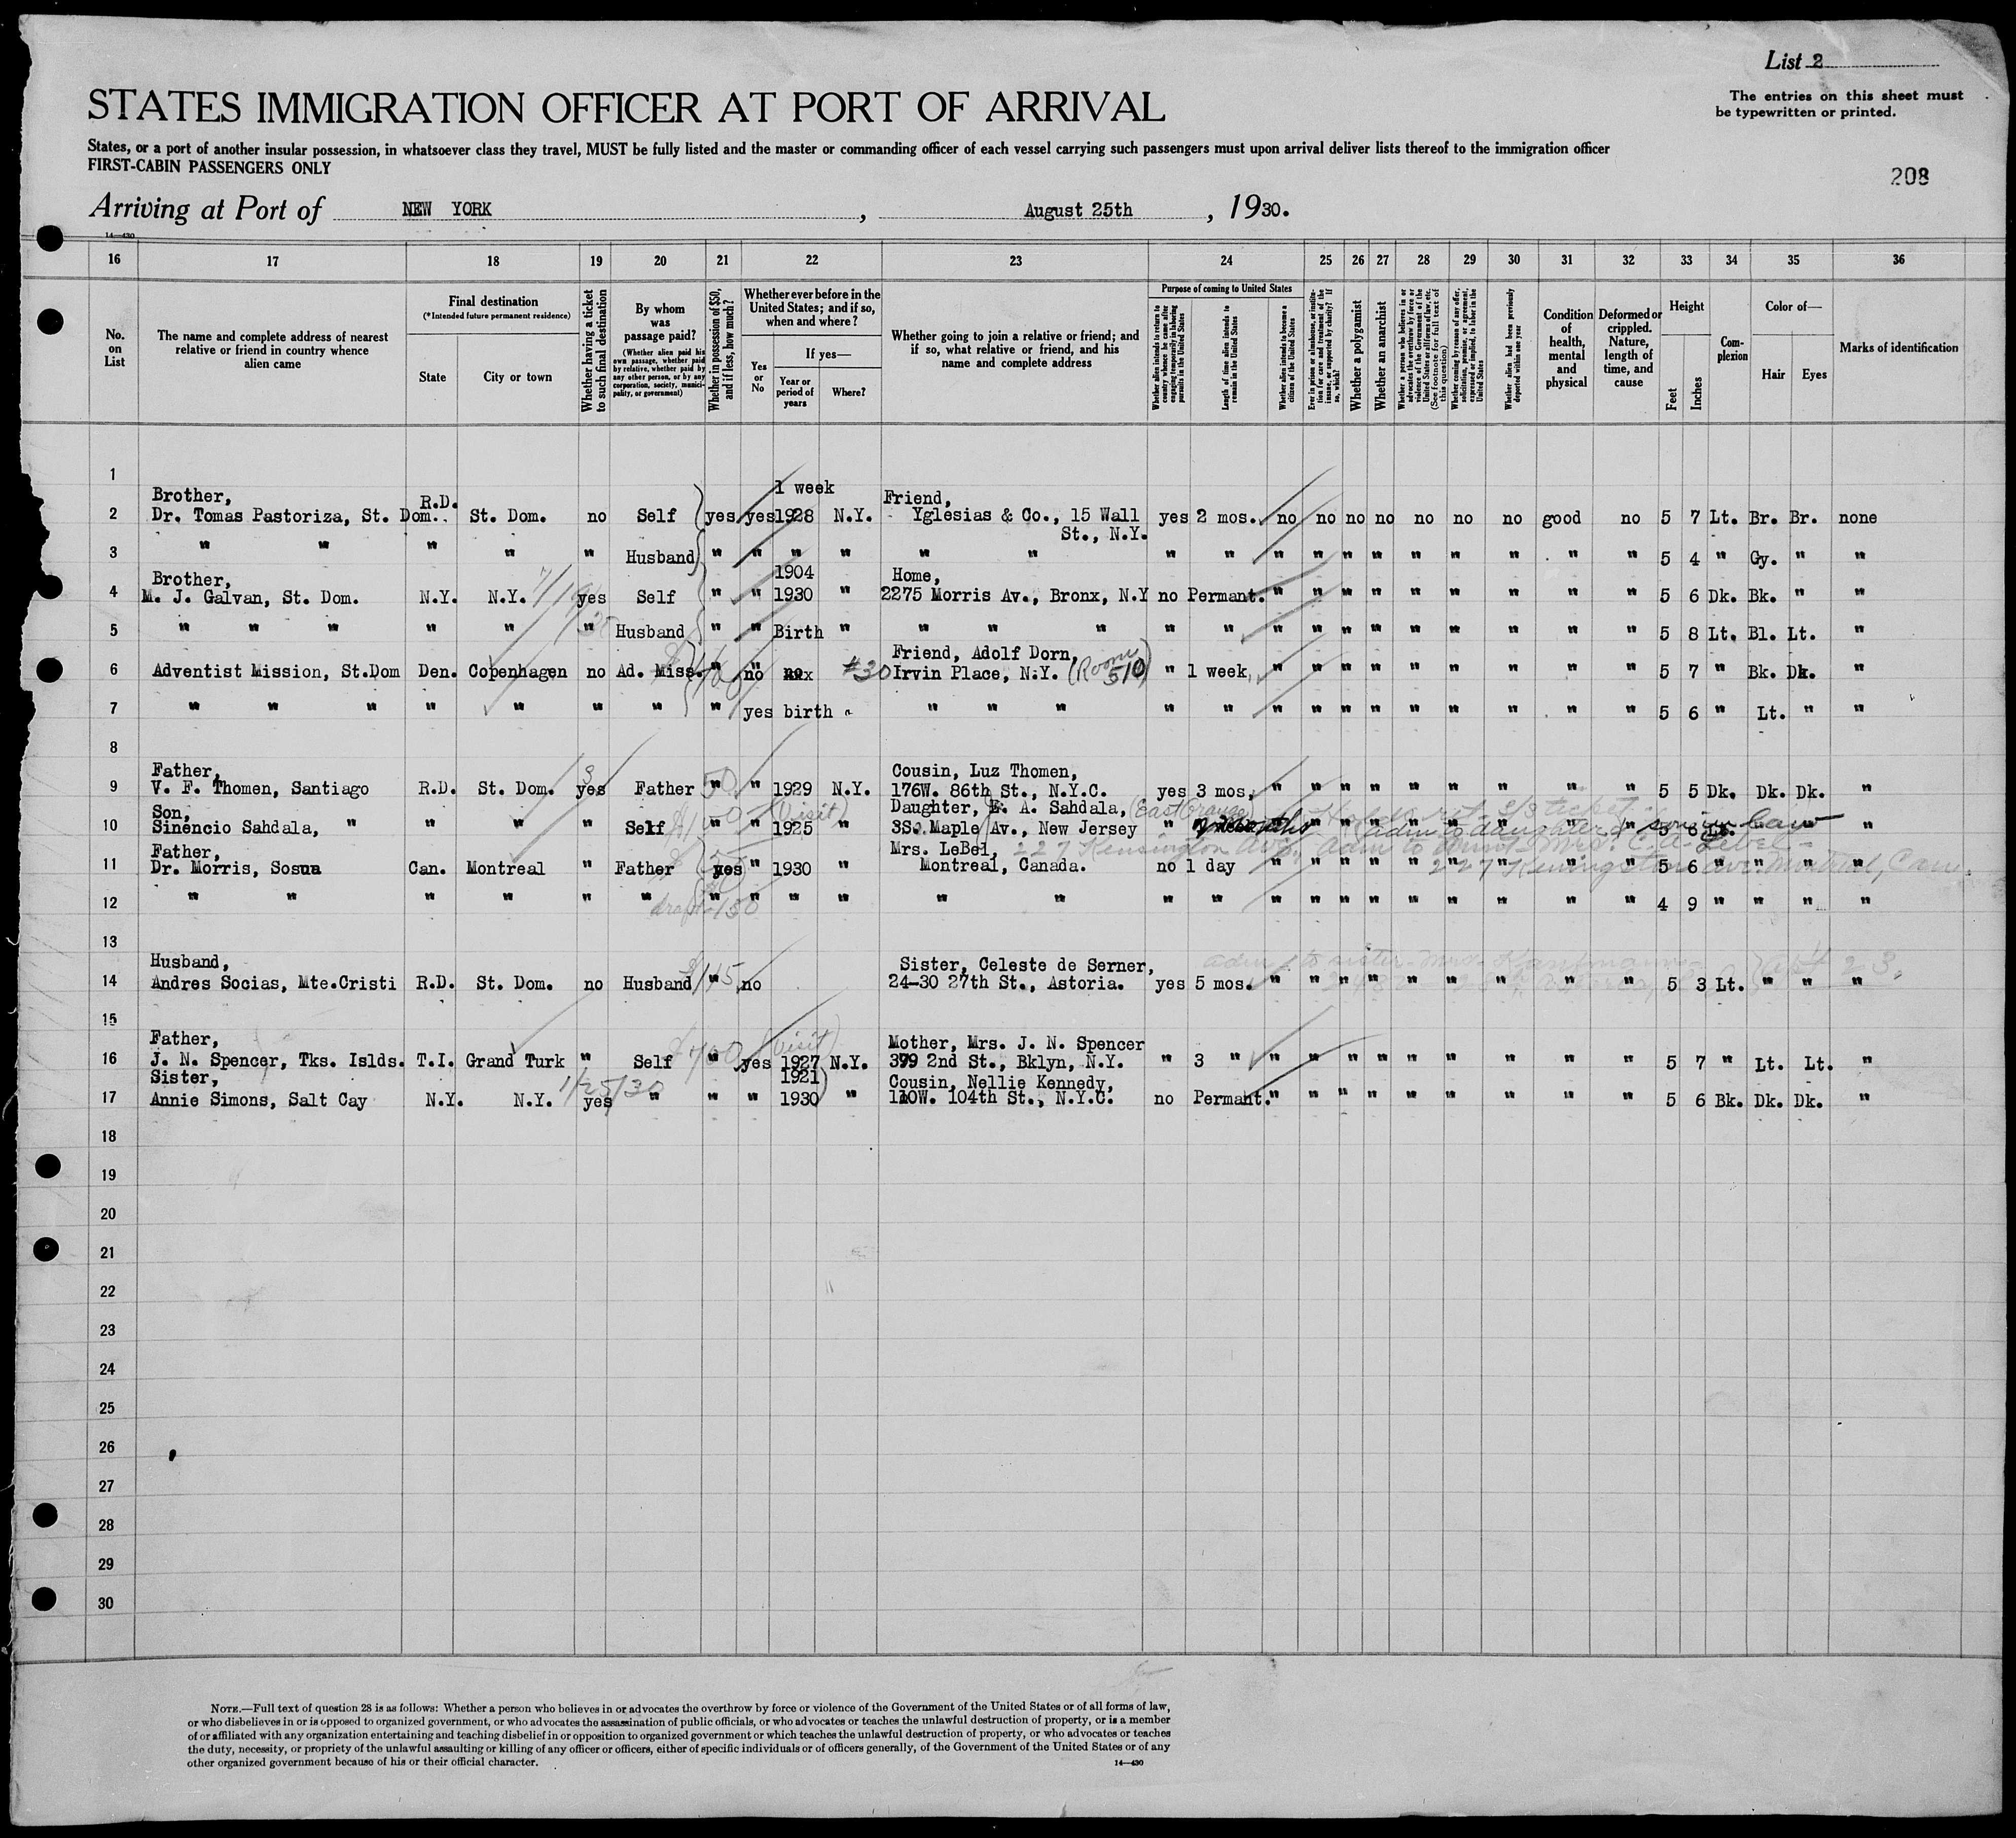 List 2
STATES IMMIGRATION OFFICER AT PORT OF ARRIVAL
The entries on this sheet must
be typewritten or printed.
States, or a port of another insular possession, in whatsoever class they travel, MUST be fully listed and the master or commanding officer of each vessel carrying such passengers must upon arrival deliver lists thereof to the immigration officer
FIRST-CABIN PASSENGERS ONLY
208
Arriving at Port of NEW YORK, August 25th, 1930.
14—430
16 17 18 19 20 21 22 23 24 25 26 27 28 29 30 31 32 33 34 35 36
No. on List
The name and complete address of nearest relative or friend in country whence alien came
Final destination
(*Intended future permanent residence)
State
City or town
Whether having a ticket to such final destination
By whom was passage paid?
(Whether alien paid his own passage, whether paid by relative, whether paid by any other person, or by any corporation, society, municipality, or government)
Whether in possession of $50, and if less, how much?
Whether ever before in the United States; and if so, when and where?
Yes or No
If yes—
Year or period of years
Where?
Whether going to join a relative or friend; and if so, what relative or friend, and his name and complete address
Purpose of coming to United States
Whether alien intends to return to country whence he came after engaging temporarily in laboring pursuits in the United States
Length of time alien intends to remain in the United States
Whether alien intends to become a citizen of the United States
Ever in prison or almshouse, or institution for care and treatment of the insane, or supported by charity? If so, which?
Whether a polygamist
Whether an anarchist
Whether a person who believes in or advocates the overthrow by force or violence of the Government of the United States or all forms of law, etc. (See footnote for full text of this question)
Whether coming by reason of any offer, solicitation, promise, or agreement, expressed or implied, to labor in the United States
Whether alien had been previously deported within one year
Condition of health, mental and physical
Deformed or crippled. Nature, length of time, and cause
Height
Feet
Inches
Complexion
Color of—
Hair
Eyes
Marks of identification
1
1 week
Brother, R.D. Friend,
2 Dr. Tomas Pastoriza, St. Dom. St. Dom. no Self yes yes 1928 N.Y. Yglesias & Co., 15 Wall yes 2 mos. no no no no no no no good no 5 7 Lt. Br. Br. none
St., N.Y.
3 " " " " " Husband " " " " " " " " " " " " " " " " " " 5 4 " Gy. " "
Brother, 1904 Home,
4 M. J. Galvan, St. Dom. N.Y. N.Y. yes Self " " 1930 " 2275 Morris Av., Bronx, N.Y no Permant. " " " " " " " " " 5 6 Dk. Bk. " "
5 " " " " " Husband " " Birth " " " " " " " " " " " " " " " 5 8 Lt. Bl. Lt. "
Friend, Adolf Dorn,
6 Adventist Mission, St.Dom Den. Copenhagen no Ad. Miss. " no no #30 Irvin Place, N.Y. (Room 510) " 1 week, " " " " " " " " " 5 7 " Bk. Dk. "
7 " " " " " " " " yes birth " " " " " " " " " " " " " " " 5 6 " Lt. " "
8
Father, 3 Cousin, Luz Thomen,
9 V. F. Thomen, Santiago R.D. St. Dom. yes Father " 50 " 1929 N.Y. 176W. 86th St., N.Y.C. yes 3 mos, " " " " " " " " " 5 5 Dk. Dk. Dk. "
Son, (Visit) Daughter, E. A. Sahdala, (East Orange)
10 Sinencio Sahdala, " " " " Self " " 1925 " 38 Maple Av., New Jersey " " " " " " " " " 5 6 Lt. " " "
adm to daughter & son in law
Father, Mrs. LeBel, 227 Kensington Ave., adm to aunt Mrs. C. A. Lebel -
11 Dr. Morris, Sosua Can. Montreal " Father yes " 1930 " Montreal, Canada. no 1 day " " " " " " " " " 5 6 " " " "
227 Kensington Ave. Montreal, Can.
12 " " " " " " " " " " " " " " " " " " " " " " " 4 9 " " " "
draft 150
13
Husband, Sister, Celeste de Serner, adm to sister - Mrs.
14 Andres Socias, Mte.Cristi R.D. St. Dom. no Husband $115 " no 24-30 27th St., Astoria. yes 5 mos. " " " " " " " " " 5 3 Lt. " " "
15
Father, (Visit) Mother, Mrs. J. N. Spencer
16 J. N. Spencer, Tks. Islds. T.I. Grand Turk " Self " yes 1927 N.Y. 399 2nd St., Bklyn, N.Y. " 3 " " " " " " " " " " 5 7 " Lt. Lt. "
Sister, 1921 Cousin, Nellie Kennedy,
17 Annie Simons, Salt Cay N.Y. N.Y. 1/25/30 yes " " " 1930 " 110W. 104th St., N.Y.C. no Permant. " " " " " " " " " 5 6 Bk. Dk. Dk. "
18
19
20
21
22
23
24
25
26
27
28
29
30
NOTE.—Full text of question 28 is as follows: Whether a person who believes in or advocates the overthrow by force or violence of the Government of the United States or of all forms of law,
or who disbelieves in or is opposed to organized government, or who advocates the assassination of public officials, or who advocates or teaches the unlawful destruction of property, or is a member
of or affiliated with any organization entertaining and teaching disbelief in or opposition to organized government or which teaches the unlawful destruction of property, or who advocates or teaches
the duty, necessity, or propriety of the unlawful assaulting or killing of any officer or officers, either of specific individuals or of officers generally, of the Government of the United States or of any
other organized government because of his or their official character.
14—430